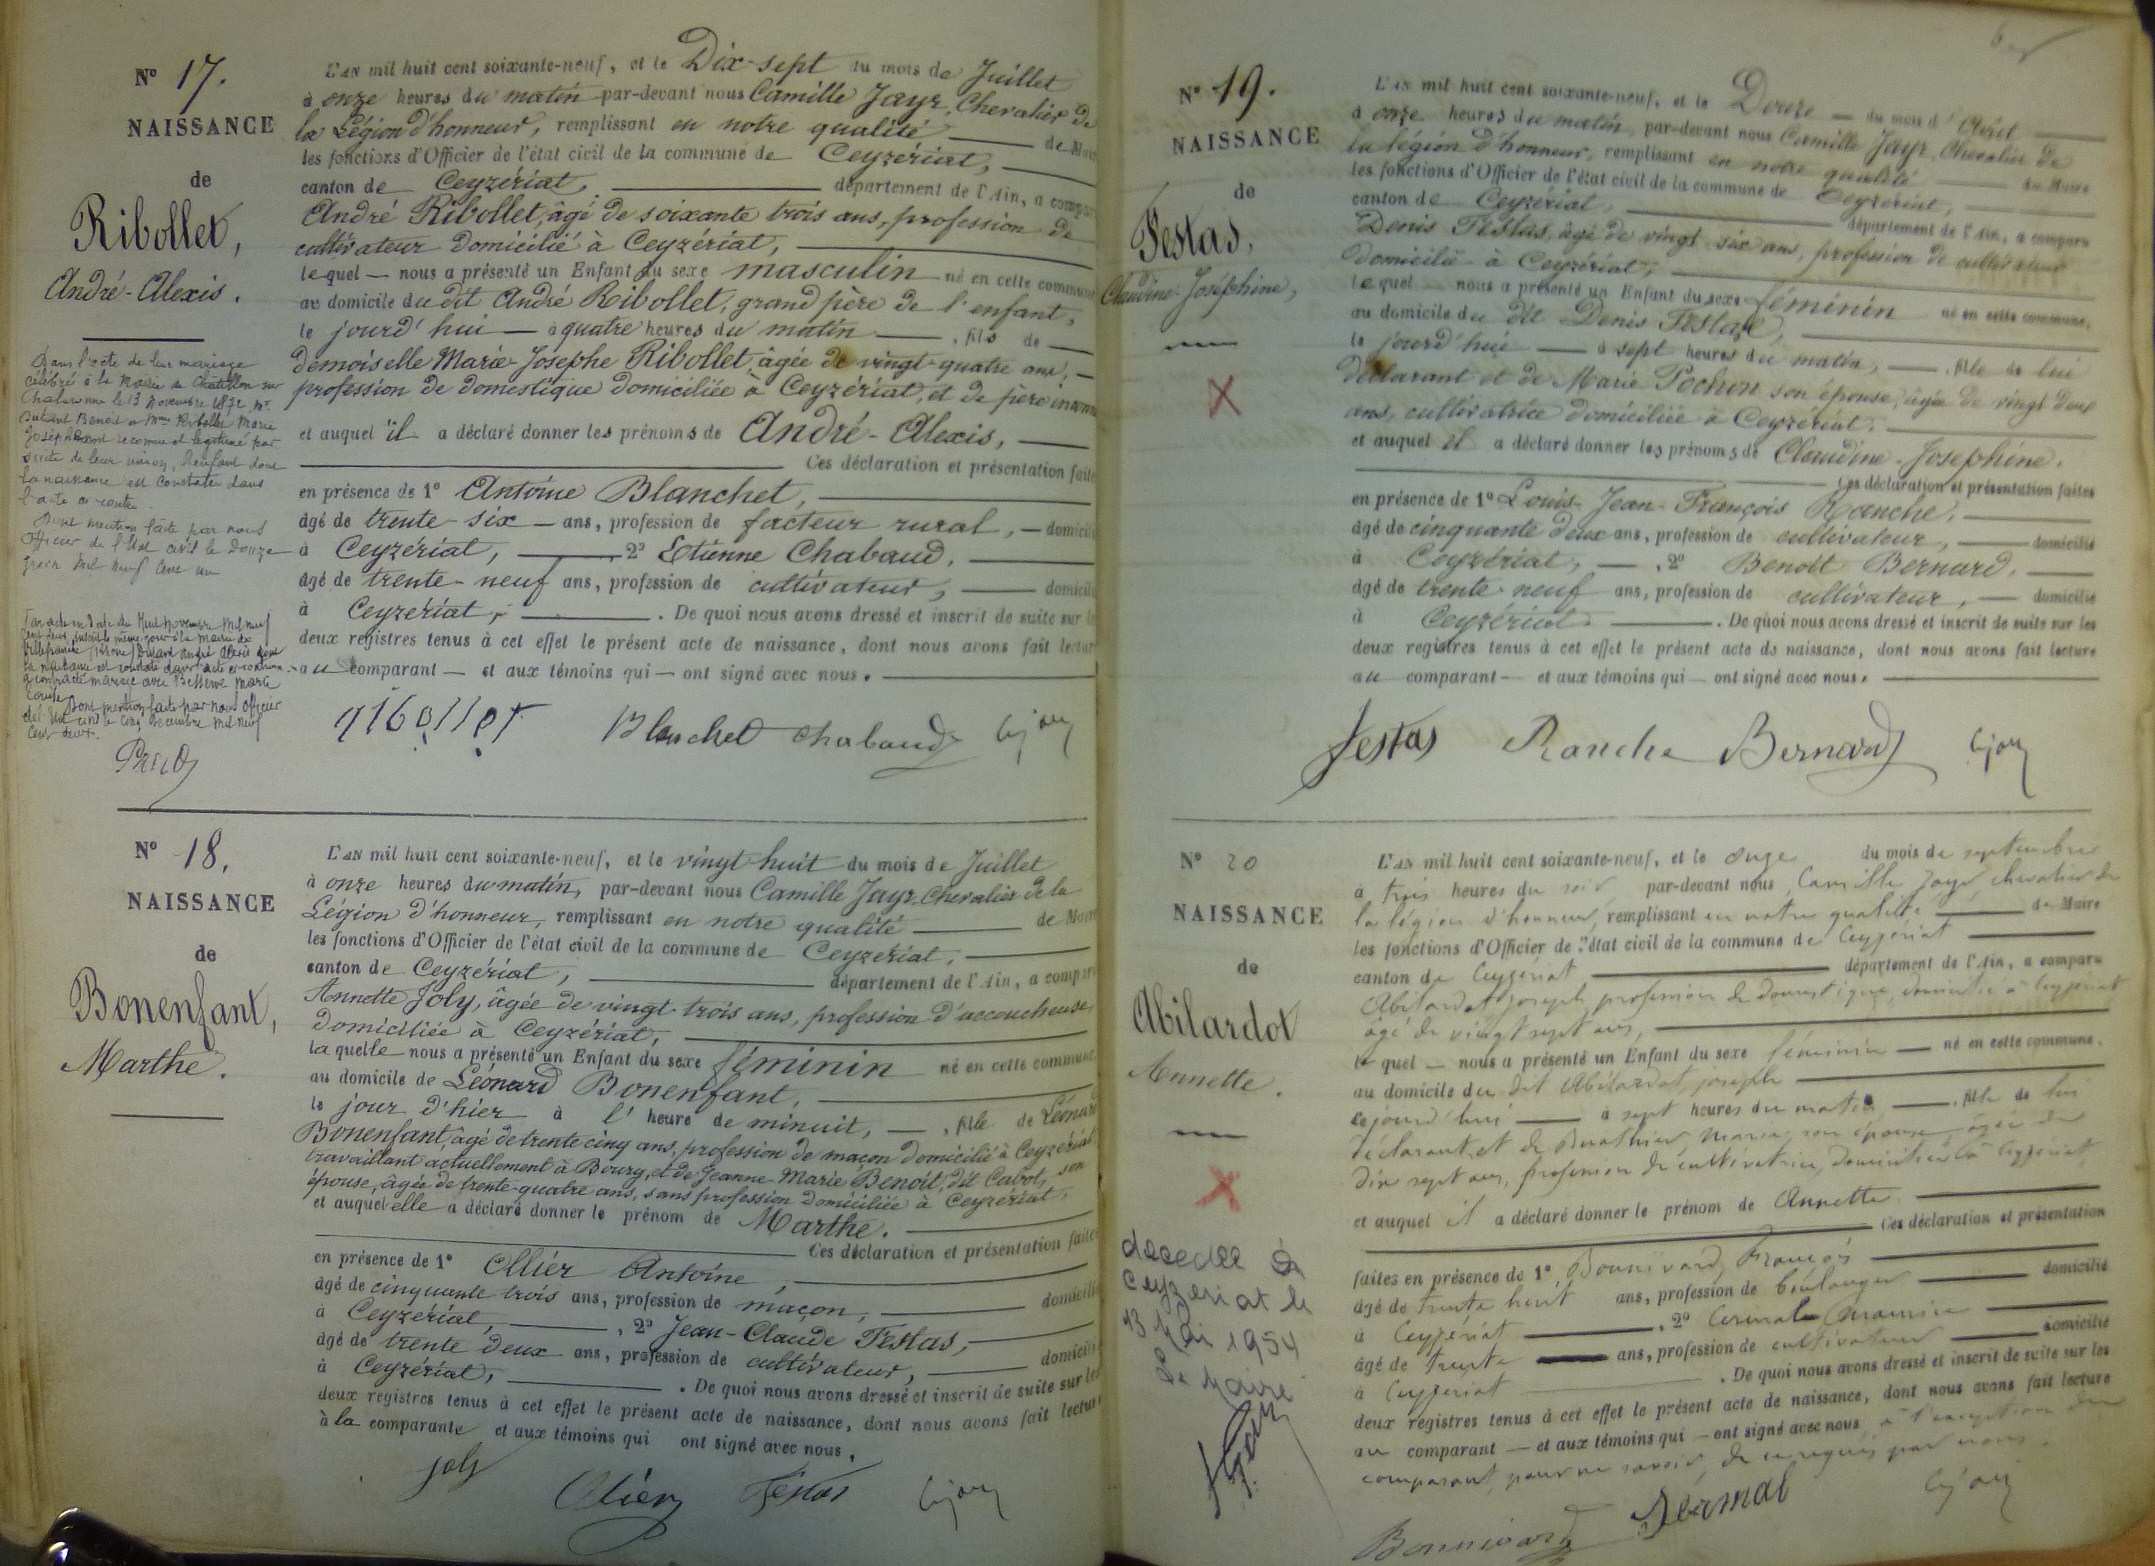 N° 17.
NAISSANCE
de
Ribollet,
André-Alexis.
Dans l'acte de leur mariage
célébré à la Mairie de Chatillon sur
Chalaronne le 13 Novembre 1872, Mr
Benoit et Mme Ribollet Marie
Josephe ont reconnu et légitimé par
suite de leur union, l'enfant dont
la naissance est constatée dans
l'acte ci-contre.
Dont mention faite par nous
Officier de l'Etat civil le Douze
mil neuf cent un
Par acte en date du Huit Novembre mil neuf
cent deux, inscrit le même jour à la mairie de
Villefranche (Rhône) André Alexis dont
la naissance est constatée dans l'acte ci-contre
a contracté mariage avec Marie
Dont mention faite par nous Officier
de l'Etat civil le cinq Décembre mil neuf
cent deux.
L'AN mil huit cent soixante-neuf, et le Dix-sept du mois de Juillet
à onze heures du matin par-devant nous Camille Jayr, Chevalier de
la Légion d'honneur, remplissant en notre qualité de Maire
les fonctions d'Officier de l'état civil de la commune de Ceyzériat,
canton de Ceyzériat, département de l'Ain, a compar
André Ribollet, âgé de soixante trois ans, profession de
cultivateur domicilié à Ceyzériat,
lequel nous a présenté un Enfant du sexe masculin né en cette commune
au domicile du dit André Ribollet, grand père de l'enfant,
le jourd'hui à quatre heures du matin, fils de
demoiselle Marie-Josephe Ribollet, âgée de vingt-quatre ans,
profession de domestique domiciliée à Ceyzériat, et de père inconnu
et auquel il a déclaré donner les prénoms de André-Alexis,
Ces déclaration et présentation faite
en présence de 1° Antoine Blanchet,
âgé de trente-six ans, profession de facteur rural, domicili
à Ceyzériat, 2° Etienne Chabaud,
âgé de trente-neuf ans, profession de cultivateur, domicili
à Ceyzériat, . De quoi nous avons dressé et inscrit de suite sur le
deux registres tenus à cet effet le présent acte de naissance, dont nous avons fait lectur
au comparant et aux témoins qui ont signé avec nous.
Ribollet Blanchet Chabaud C. Jayr
N° 18.
NAISSANCE
de
Bonenfant,
Marthe.
L'AN mil huit cent soixante-neuf, et le vingt huit du mois de Juillet
à onze heures du matin, par-devant nous Camille Jayr, Chevalier de la
Légion d'honneur, remplissant en notre qualité de Maire
les fonctions d'Officier de l'état civil de la commune de Ceyzériat,
canton de Ceyzériat, département de l'Ain, a comparu
Annette Joly, âgée de vingt-trois ans, profession d'accoucheuse
domiciliée à Ceyzériat,
laquelle nous a présenté un Enfant du sexe féminin né en cette commune
au domicile de Léonard Bonenfant,
le jour d'hier à l'heure de minuit, fille de Léonard
Bonenfant, âgé de trente cinq ans, profession de maçon domicilié à Ceyzériat
travaillant actuellement à Bourg, et de Jeanne-Marie Benoit, dit Cabot, son
épouse, âgée de trente-quatre ans, sans profession domiciliée à Ceyzériat,
et auquel elle a déclaré donner le prénom de Marthe.
Ces déclaration et présentation faite
en présence de 1° Ollier Antoine,
âgé de cinquante trois ans, profession de maçon, domicilié
à Ceyzériat, 2° Jean-Claude Festas,
âgé de trente deux ans, profession de cultivateur, domicilié
à Ceyzériat, . De quoi nous avons dressé et inscrit de suite sur les
deux registres tenus à cet effet le présent acte de naissance, dont nous avons fait lectur
à la comparante et aux témoins qui ont signé avec nous.
Joly Ollier Festas C. Jayr
N° 19.
NAISSANCE
de
Festas,
Claudine-Joséphine,
L'AN mil huit cent soixante-neuf, et le Douze du mois d'Août
à onze heures du matin, par-devant nous Camille Jayr, Chevalier de
la légion d'honneur, remplissant en notre qualité de Maire
les fonctions d'Officier de l'état civil de la commune de Ceyzériat,
canton de Ceyzériat, département de l'Ain, a comparu
Denis Festas, âgé de vingt-six ans, profession de cultivateur
domicilié à Ceyzériat,
lequel nous a présenté un Enfant du sexe féminin né en cette commune,
au domicile du dit Denis Festas,
le jourd'hui à sept heures du matin, fille de lui
déclarant et de Marie Pochon son épouse, âgée de vingt deux
ans, cultivatrice domiciliée à Ceyzériat.
et auquel il a déclaré donner les prénoms de Claudine-Josephine.
Ces déclaration et présentation faites
en présence de 1° Louis-Jean-François Ranche,
âgé de cinquante deux ans, profession de cultivateur, domicilié
à Ceyzériat, 2° Benoît Bernard,
âgé de trente-neuf ans, profession de cultivateur, domicilié
à Ceyzériat . De quoi nous avons dressé et inscrit de suite sur les
deux registres tenus à cet effet le présent acte de naissance, dont nous avons fait lecture
au comparant et aux témoins qui ont signé avec nous.
Festas Ranche Bernard C. Jayr
N° 20
NAISSANCE
de
Abilardot
Annette.
décédée à
Ceyzériat le
13 Mai 1954
Le Maire
L'AN mil huit cent soixante-neuf, et le onze du mois de septembre
à trois heures du soir par-devant nous, Camille Jayr, chevalier de
la légion d'honneur, remplissant en notre qualité de Maire
les fonctions d'Officier de l'état civil de la commune de Ceyzeriat
canton de Ceyzeriat département de l'Ain, a comparu
Abilardot joseph profession de domestique, domicilié à Ceyzeriat
âgé de vingt sept ans,
lequel nous a présenté un Enfant du sexe féminin né en cette commune.
au domicile du dit Abilardot joseph
cejourd'hui à sept heures du matin, fille de lui
déclarant et de Marie, son épouse, âgée de
dix sept ans, profession de cultivatrice, domiciliée à Ceyzeriat,
et auquel il a déclaré donner le prénom de Annette.
Ces déclaration et présentation
faites en présence de 1° Bonnivard, François
âgé de trente huit ans, profession de boulanger domicilié
à Ceyzériat, 2°
âgé de trente ans, profession de cultivateur domicilié
à Ceyzeriat . De quoi nous avons dressé et inscrit de suite sur les
deux registres tenus à cet effet le présent acte de naissance, dont nous avons fait lecture
au comparant et aux témoins qui ont signé avec nous à l'exception du
comparant, pour ne savoir, de ce requis par nous.
Bonnivard C. Jayr